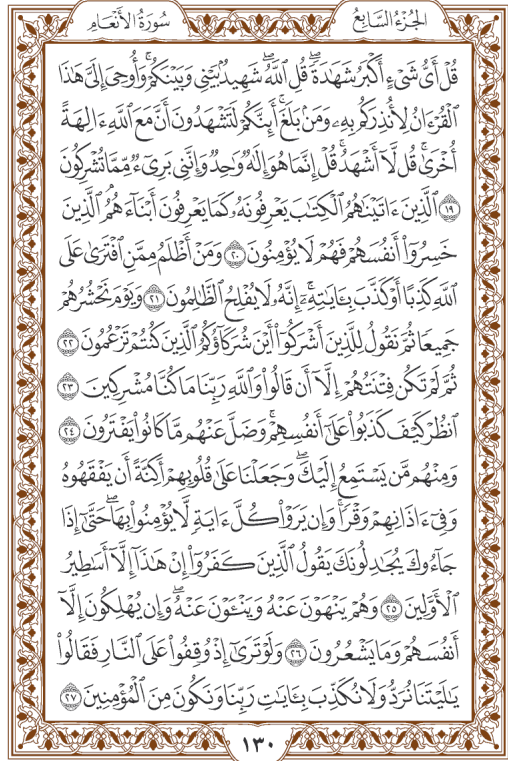 الجزء السابع
سورة الأنعام
قُلْ أَىُّ شَىْءٍ أَكْبَرُ شَهَٰدَةً ۖ قُلِ ٱللَّهُ ۖ شَهِيدٌۢ بَيْنِى وَبَيْنَكُمْ ۚ وَأُوحِىَ إِلَىَّ هَٰذَا
ٱلْقُرْءَانُ لِأُنذِرَكُم بِهِۦ وَمَنۢ بَلَغَ ۚ أَئِنَّكُمْ لَتَشْهَدُونَ أَنَّ مَعَ ٱللَّهِ ءَالِهَةً
أُخْرَىٰ ۚ قُل لَّآ أَشْهَدُ ۚ قُلْ إِنَّمَا هُوَ إِلَٰهٌ وَٰحِدٌ وَإِنَّنِى بَرِىٓءٌ مِّمَّا تُشْرِكُونَ
١٩ ٱلَّذِينَ ءَاتَيْنَٰهُمُ ٱلْكِتَٰبَ يَعْرِفُونَهُۥ كَمَا يَعْرِفُونَ أَبْنَآءَهُمُ ۘ ٱلَّذِينَ
خَسِرُوٓا۟ أَنفُسَهُمْ فَهُمْ لَا يُؤْمِنُونَ ٢٠ وَمَنْ أَظْلَمُ مِمَّنِ ٱفْتَرَىٰ عَلَى
ٱللَّهِ كَذِبًا أَوْ كَذَّبَ بِـَٔايَٰتِهِۦٓ ۗ إِنَّهُۥ لَا يُفْلِحُ ٱلظَّٰلِمُونَ ٢١ وَيَوْمَ نَحْشُرُهُمْ
جَمِيعًا ثُمَّ نَقُولُ لِلَّذِينَ أَشْرَكُوٓا۟ أَيْنَ شُرَكَآؤُكُمُ ٱلَّذِينَ كُنتُمْ تَزْعُمُونَ ٢٢
ثُمَّ لَمْ تَكُن فِتْنَتُهُمْ إِلَّآ أَن قَالُوا۟ وَٱللَّهِ رَبِّنَا مَا كُنَّا مُشْرِكِينَ ٢٣
ٱنظُرْ كَيْفَ كَذَبُوا۟ عَلَىٰٓ أَنفُسِهِمْ ۚ وَضَلَّ عَنْهُم مَّا كَانُوا۟ يَفْتَرُونَ ٢٤
وَمِنْهُم مَّن يَسْتَمِعُ إِلَيْكَ ۖ وَجَعَلْنَا عَلَىٰ قُلُوبِهِمْ أَكِنَّةً أَن يَفْقَهُوهُ
وَفِىٓ ءَاذَانِهِمْ وَقْرًا ۚ وَإِن يَرَوْا۟ كُلَّ ءَايَةٍ لَّا يُؤْمِنُوا۟ بِهَا ۚ حَتَّىٰٓ إِذَا
جَآءُوكَ يُجَٰدِلُونَكَ يَقُولُ ٱلَّذِينَ كَفَرُوٓا۟ إِنْ هَٰذَآ إِلَّآ أَسَٰطِيرُ
ٱلْأَوَّلِينَ ٢٥ وَهُمْ يَنْهَوْنَ عَنْهُ وَيَنْـَٔوْنَ عَنْهُ ۖ وَإِن يُهْلِكُونَ إِلَّآ
أَنفُسَهُمْ وَمَا يَشْعُرُونَ ٢٦ وَلَوْ تَرَىٰٓ إِذْ وُقِفُوا۟ عَلَى ٱلنَّارِ فَقَالُوا۟
يَٰلَيْتَنَا نُرَدُّ وَلَا نُكَذِّبَ بِـَٔايَٰتِ رَبِّنَا وَنَكُونَ مِنَ ٱلْمُؤْمِنِينَ ٢٧
١٣٠